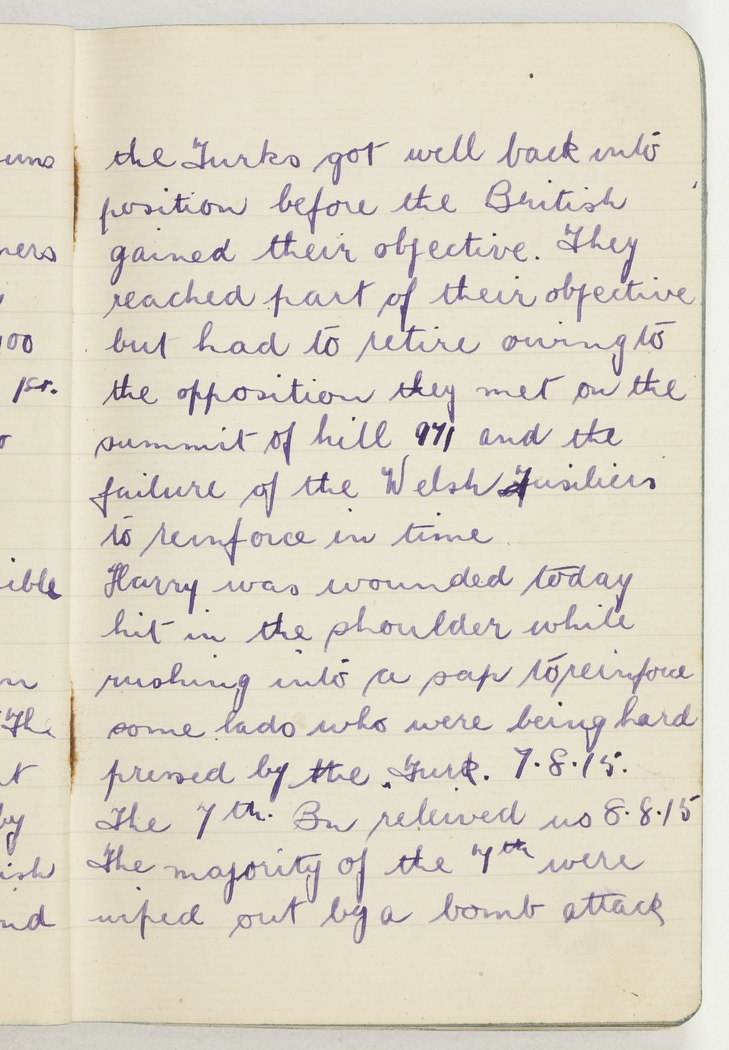 uns
ners
100
1st.
ible
The
by
ish
nd
the Turks got well back into
position before the British
gained their objective. They
reached part of their objective
but had to retire owing to
the opposition they met on the
summit of hill 971 and the
failure of the Welsh Fusiliers
to reinforce in time
Harry was wounded today
hit in the shoulder while
rushing into a sap to reinforce
some lads who were being hard
pressed by the Turk. 7.8.15.
The 7th. Bn releived us 8.8.15
The majority of the 7th were
wiped out by a bomb attack